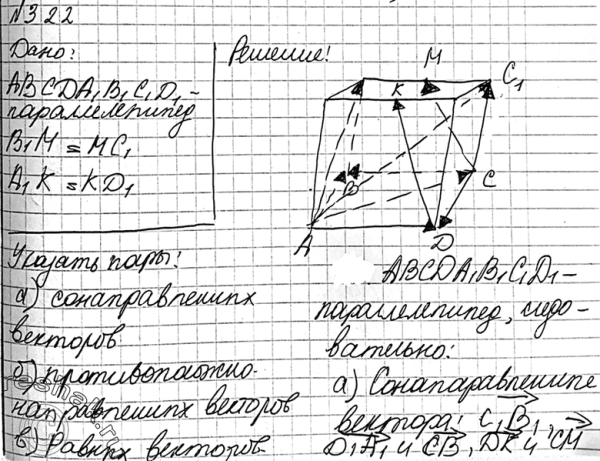 №322
Дано:
ABCDA₁B₁C₁D₁ -
параллелепипед
B₁M = MC₁
A₁K = KD₁
Указать пары:
а) сонаправленных
векторов
б) противополжно-
направленных векторов
в) Равных векторов
Решение:
M
K
C₁
B
C
A
D
ABCDA₁B₁C₁D₁ -
параллелепипед, следо-
вательно:
а) Сонаправленные
вектора: C₁B₁,
D₁A₁ и CB, DK и CM